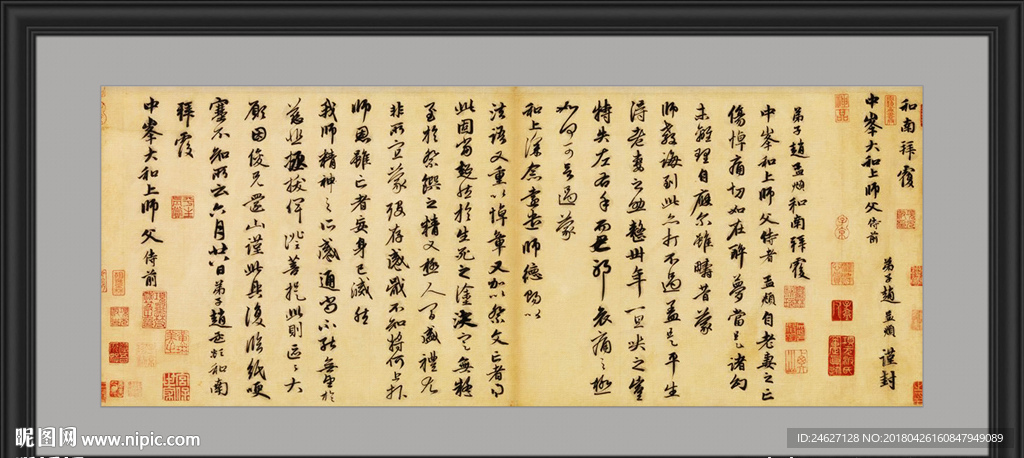 和南拜覆
中峯大和上師父侍前
弟子趙孟頫謹封
弟子趙孟頫和南拜覆
中峯和上師父侍者孟頫自老妻之亡
傷悼痛切如在醉夢當是諸幻
未離理自應爾雖疇昔蒙
師教誨到此亦打不過蓋是平生
得老妻之助整卅年一旦喪之豈
特失左右手而已耶哀痛之極
如何可言過蒙
和上深念遠遣師德賜以
法語又重以悼章又加以祭文亡者得
此固當超然於生死之塗決定無疑
至於祭饌之精又極人間盛禮尤
非所宜蒙歿存感戴不知將何上報
師恩雖亡者妄身已滅然
我師精神之所感通尚不能無望於
慈悲拯拔俾證菩提此則區區大
願因俊兄還山謹此具覆臨紙哽
塞不知所云六月廿八日弟子趙孟頫和南
拜覆
中峯大和上師父侍前
昵图网 www.nipic.com
ID:24627128 NO:20180426160847949089